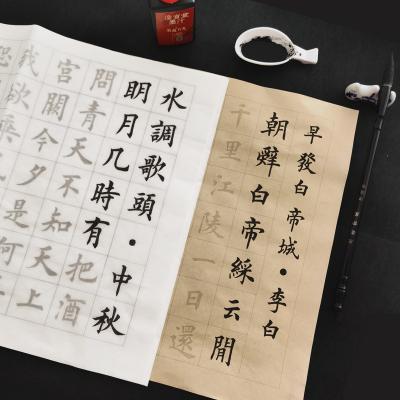 早發白帝城•李白
朝辤白帝綵云閒
千里江陵一日還
水調歌頭•中秋
眀月几時有把酒
問青天不知天上
宮闕今夕是何
我欲乘
恐